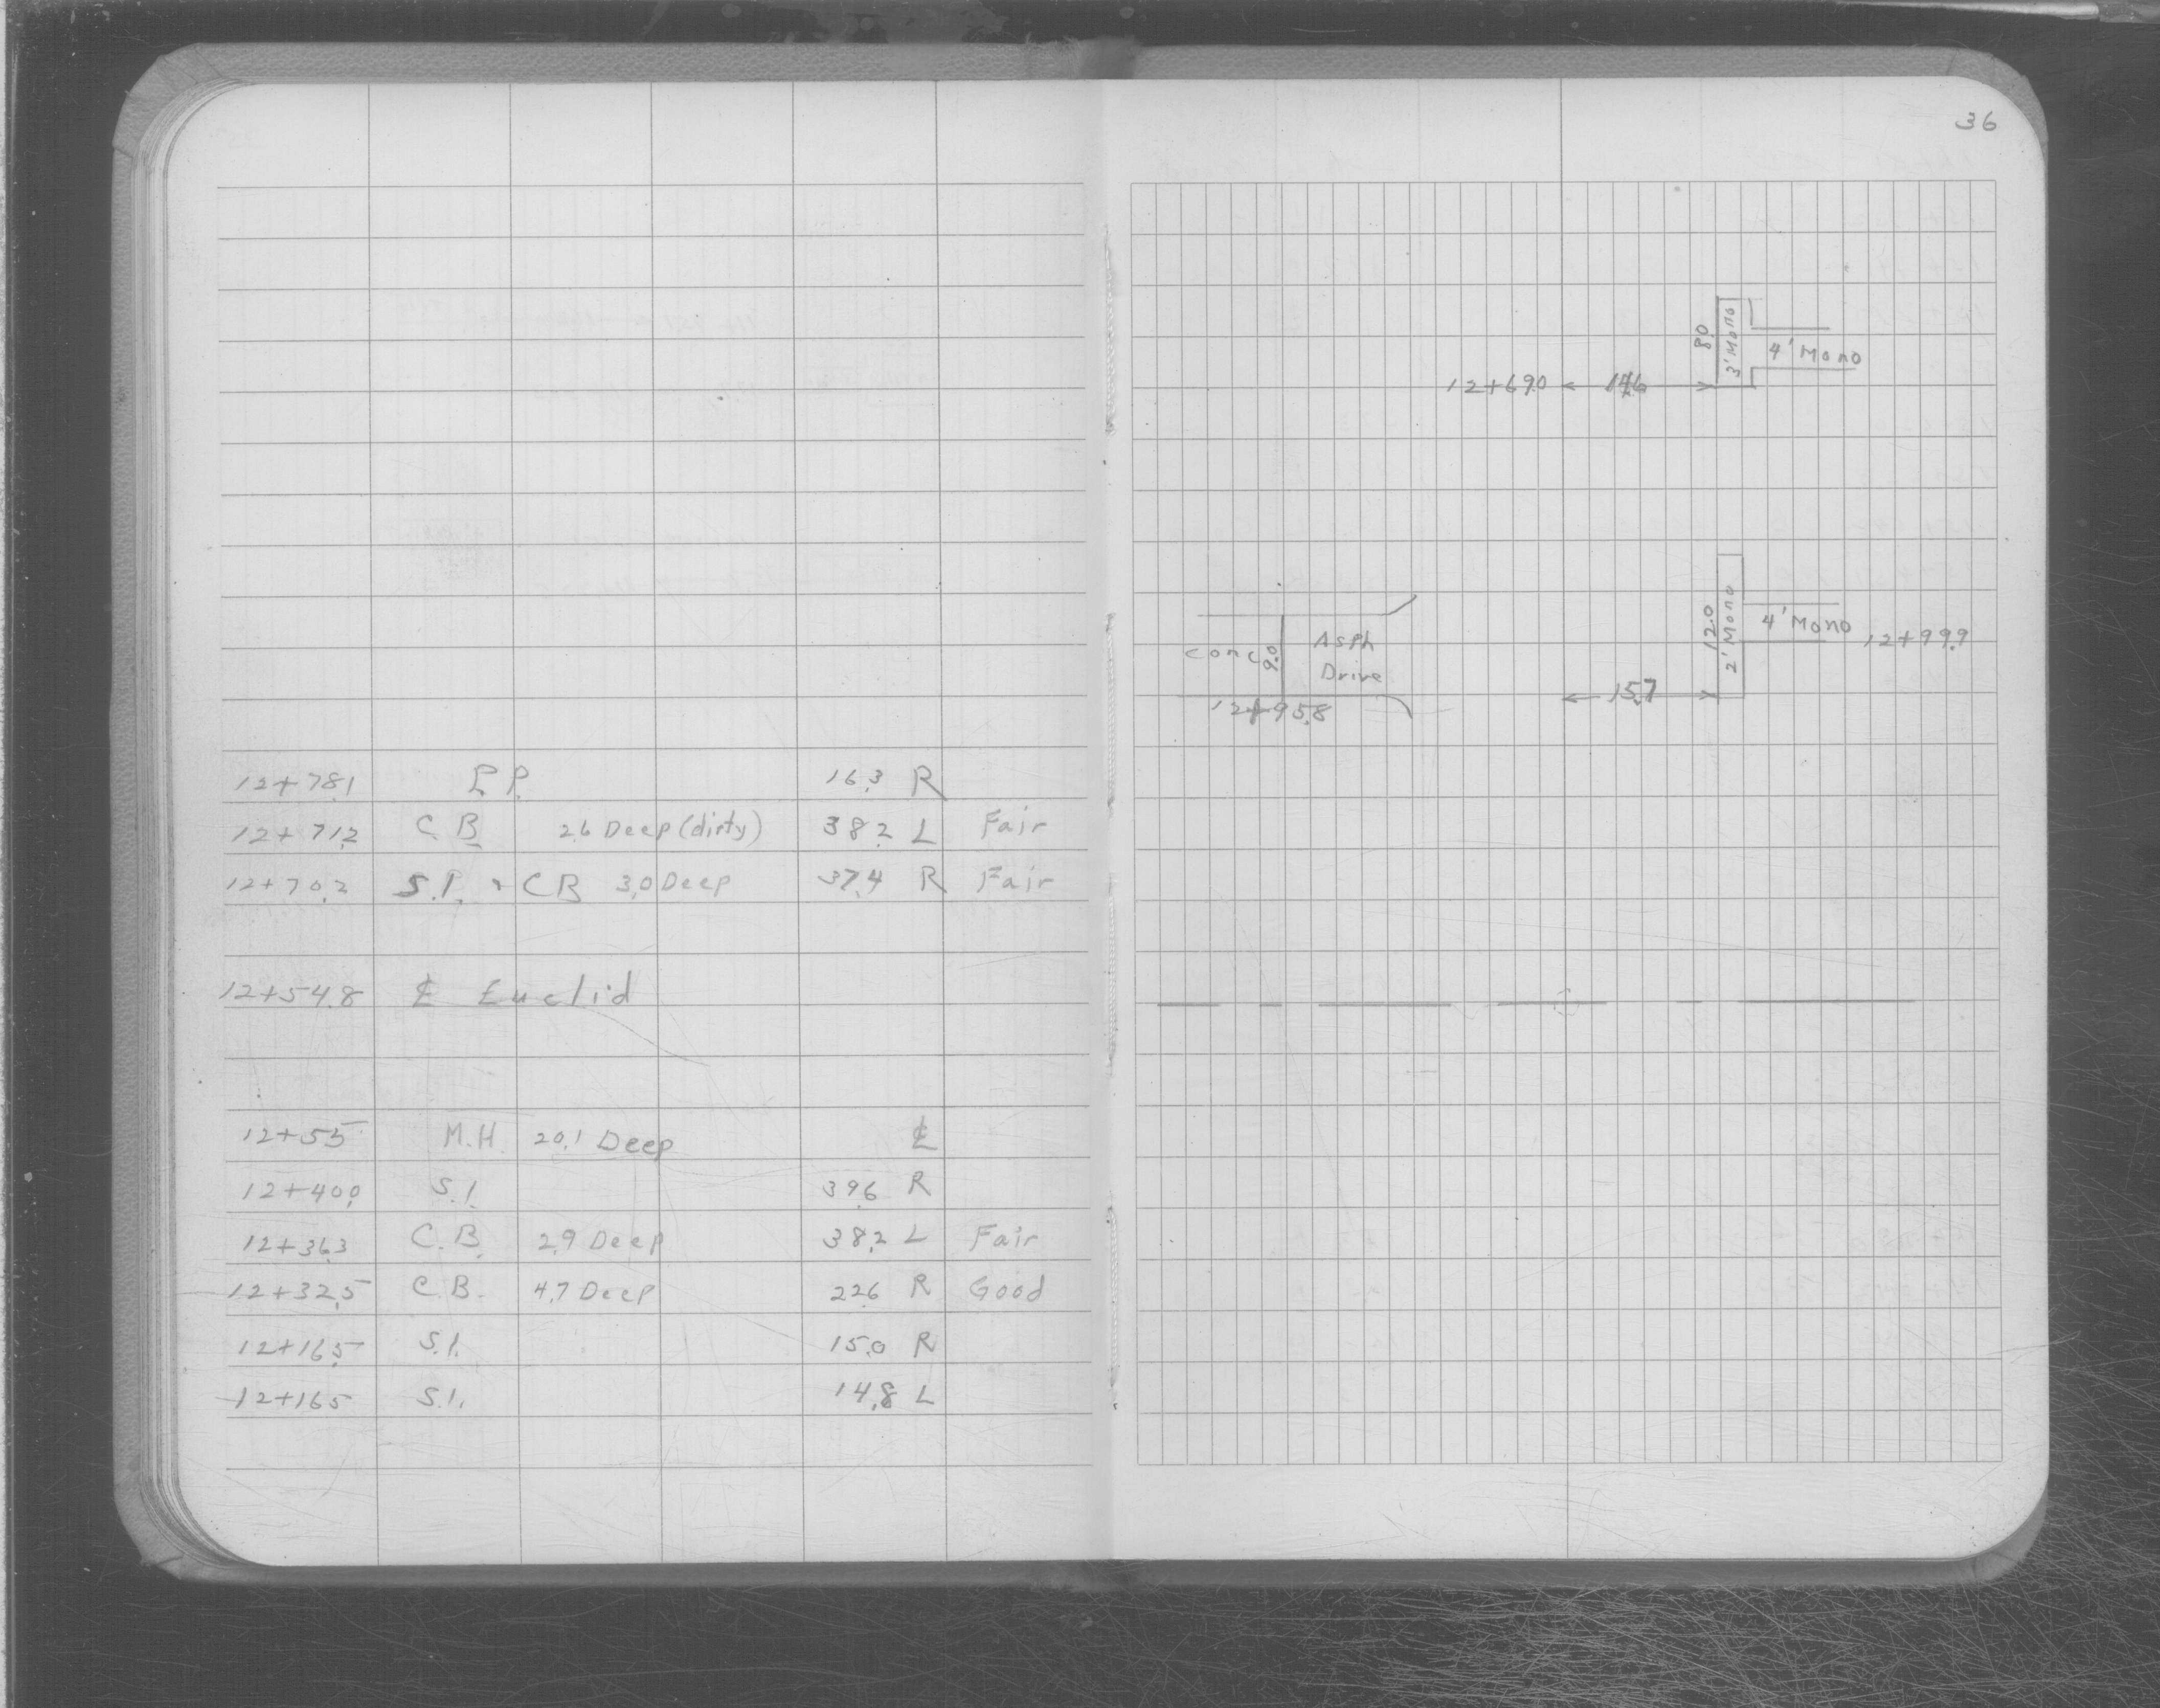 12+78.1 P.P. 16.3 R
12+71.2 C B 2.6 Deep (dirty) 38.2 L Fair
12+70.2 S.P. & CB 3.0 Deep 37.4 R Fair
12+54.8 ℄ Euclid
12+55 M.H. 20.1 Deep ℄
12+40.0 S.I. 39.6 R
12+36.3 C.B. 2.9 Deep 38.2 L Fair
12+32.5 C.B. 4.7 Deep 22.6 R Good
12+16.5 S.I. 15.0 R
12+16.5 S.I. 14.8 L
36
8.0
3' Mono
4' Mono
12+69.0 14.6
12.0
2' Mono
4' Mono 12+99.9
Conc 9.0 Asph
Drive
15.7
12+95.8